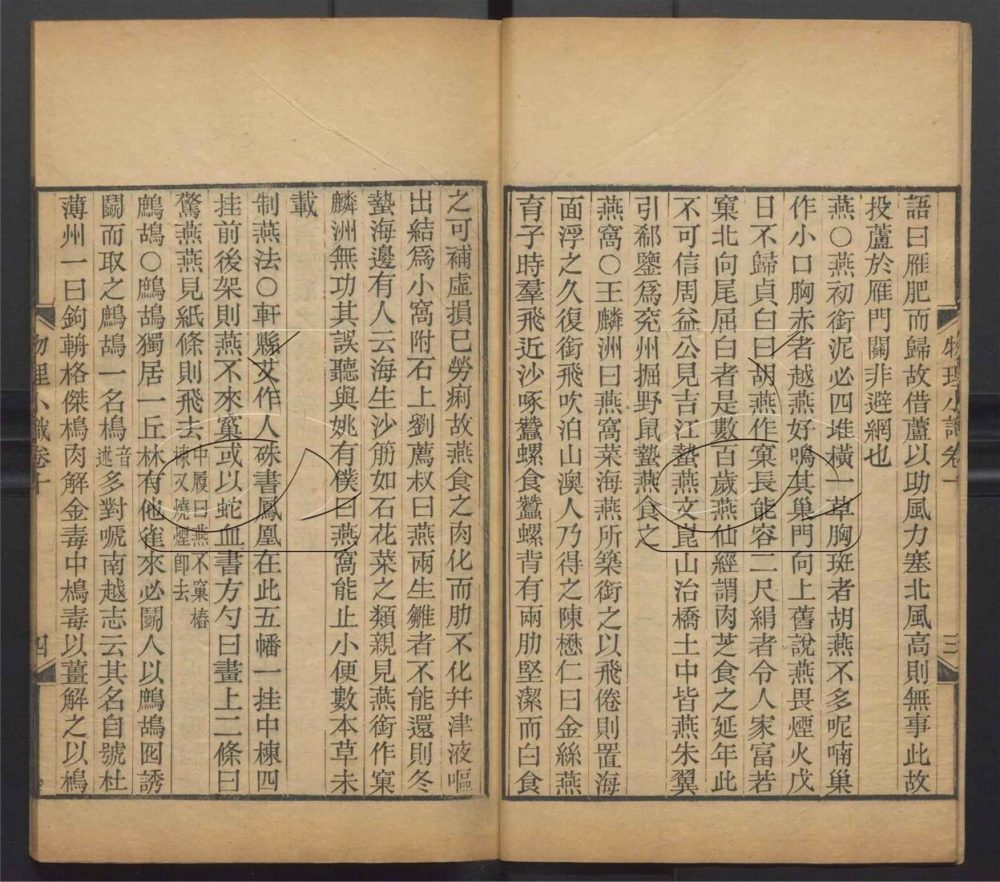 語曰雁肥而歸故借蘆以助風力塞北風高則無事此故
投蘆於雁門關非避網也
燕○燕初銜泥必四堆橫一草胸斑者胡燕不多呢喃巢
作小口胸赤者越燕好鳴其巢門向上舊說燕畏煙火戊
日不歸貞白曰胡燕作窠長能容二尺絹者令人家富若
窠北向尾屈白者是數百歲燕仙經謂肉芝食之延年此
不可信周益公見吉江蟄燕文崑山治橋土中皆燕朱翼
引郗鑒爲兖州掘野鼠蟄燕食之
燕窩○王麟洲曰燕窩菜海燕所築銜之以飛倦則置海
面浮之久復銜飛吹泊山澳人乃得之陳懋仁曰金絲燕
育子時羣飛近沙啄蠶螺食蠶螺背有兩肋堅潔而白食
物理小識卷十
三
之可補虛損已勞痢故燕食之肉化而肋不化幷津液嘔
出結爲小窩附石上劉薦叔曰燕兩生雛者不能還則冬
蟄海邊有人云海生沙筋如石花菜之類親見燕銜作窠
麟洲無功其誤聽與姚有僕曰燕窩能止小便數本草未
載
制燕法○軒縣艾作人硃書鳳凰在此五幡一挂中棟四
挂前後架則燕不來窠或以蛇血書方勺曰畫上二條曰
驚燕燕見紙條則飛去中履曰燕不窠椿棟又燒煙卽去
鷓鴣○鷓鴣獨居一丘林有他雀來必鬭人以鷓鴣囮誘
鬭而取之鷓鴣一名鴆音述多對啼南越志云其名自號杜
薄州一曰鉤輈格傑鴆肉解金毒中鴆毒以薑解之以鴆
物理小識卷十
四